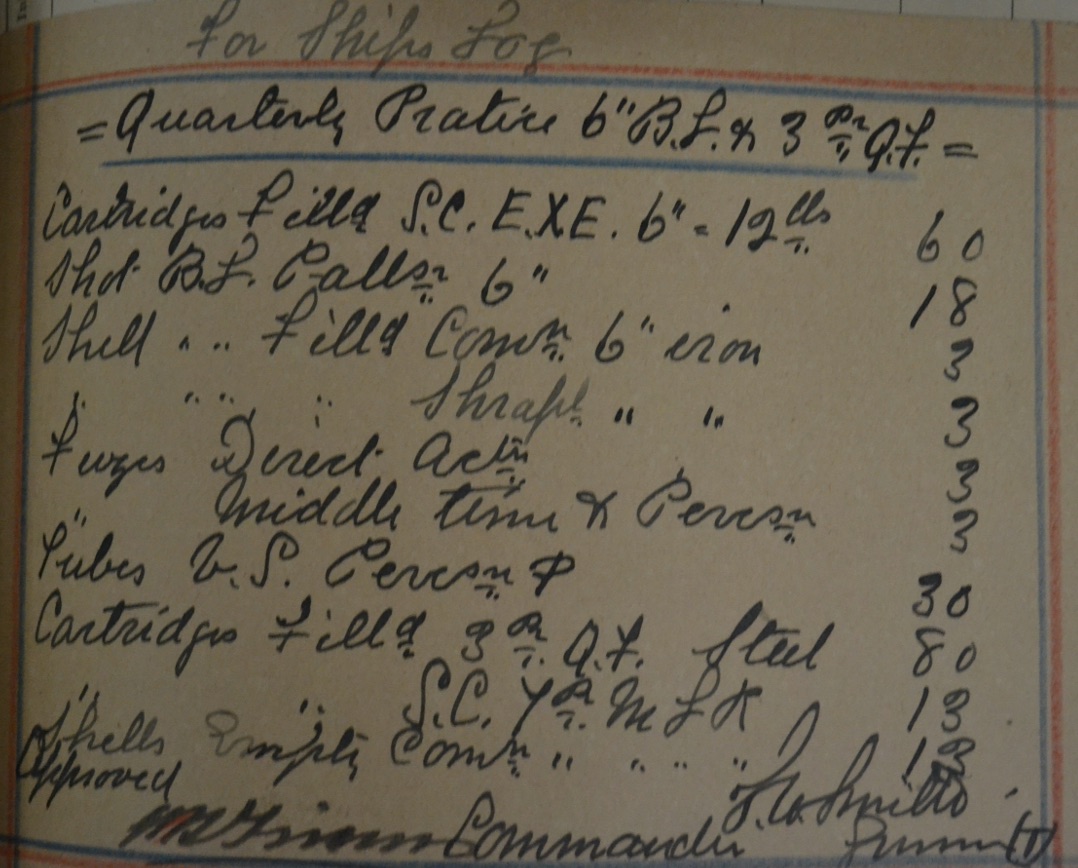 For Ships Log
= Quarterly Pratice 6" B.L. & 3 Pr Q.F. =
Cartridges Filld S.C. E.X.E. 6" = 12 lbs 60
Shot B.L. Pallsr 6" 18
Shell " " Filld Comn 6" iron 3
" " " " Shrapl " " 3
Fuzes Direct Actn 3
" Middle time & Percsn 3
Tubes V.S. Percsn P 30
Cartridges Filld 3 Pr Q.F. Steel 80
" " S.C. 7 Pr M L R 13
Shells Empty Comn " " " " 13
Approved
Commander Gunner (T)